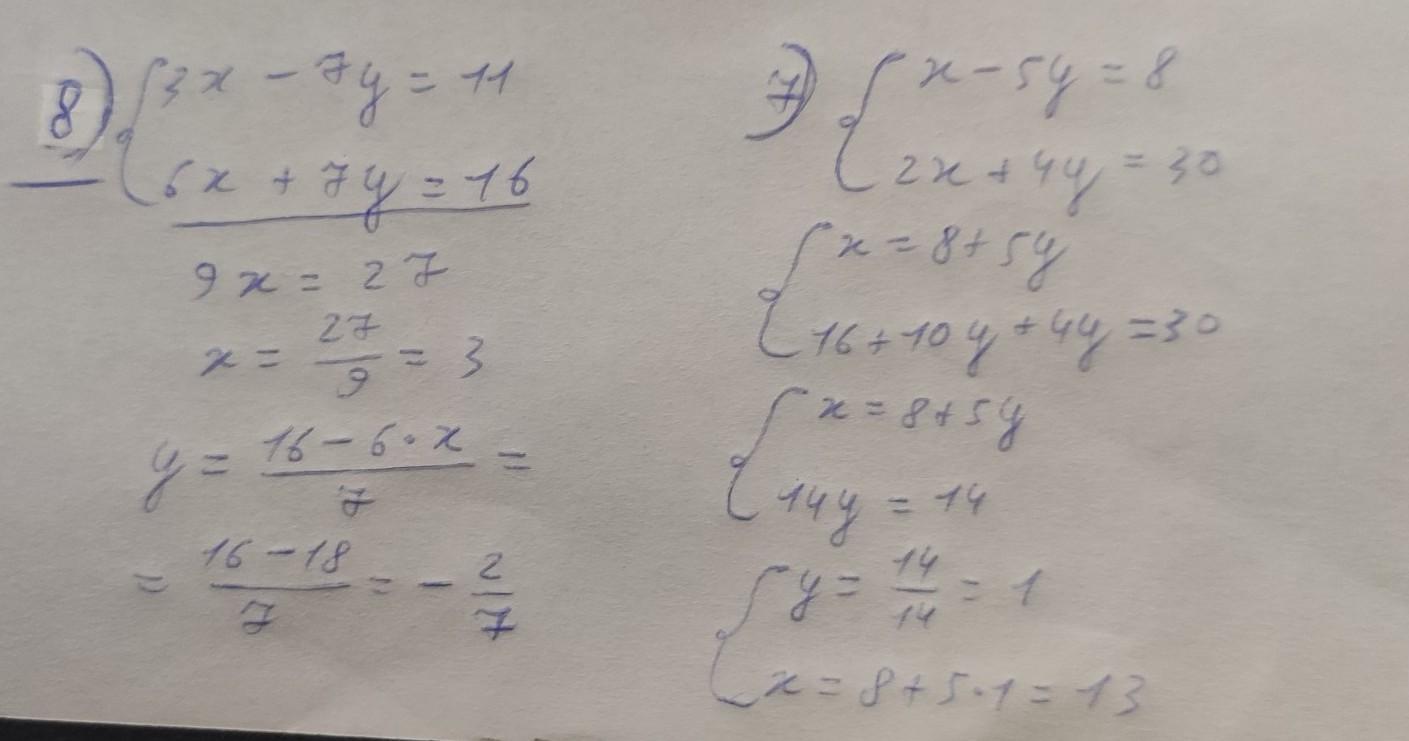 8) { 3x - 7y = 11
6x + 7y = 16
9x = 27
x = 27/9 = 3
y = (16 - 6·x)/7 =
= (16 - 18)/7 = - 2/7
7) { x - 5y = 8
2x + 4y = 30
{ x = 8 + 5y
16 + 10y + 4y = 30
{ x = 8 + 5y
14y = 14
{ y = 14/14 = 1
x = 8 + 5·1 = 13